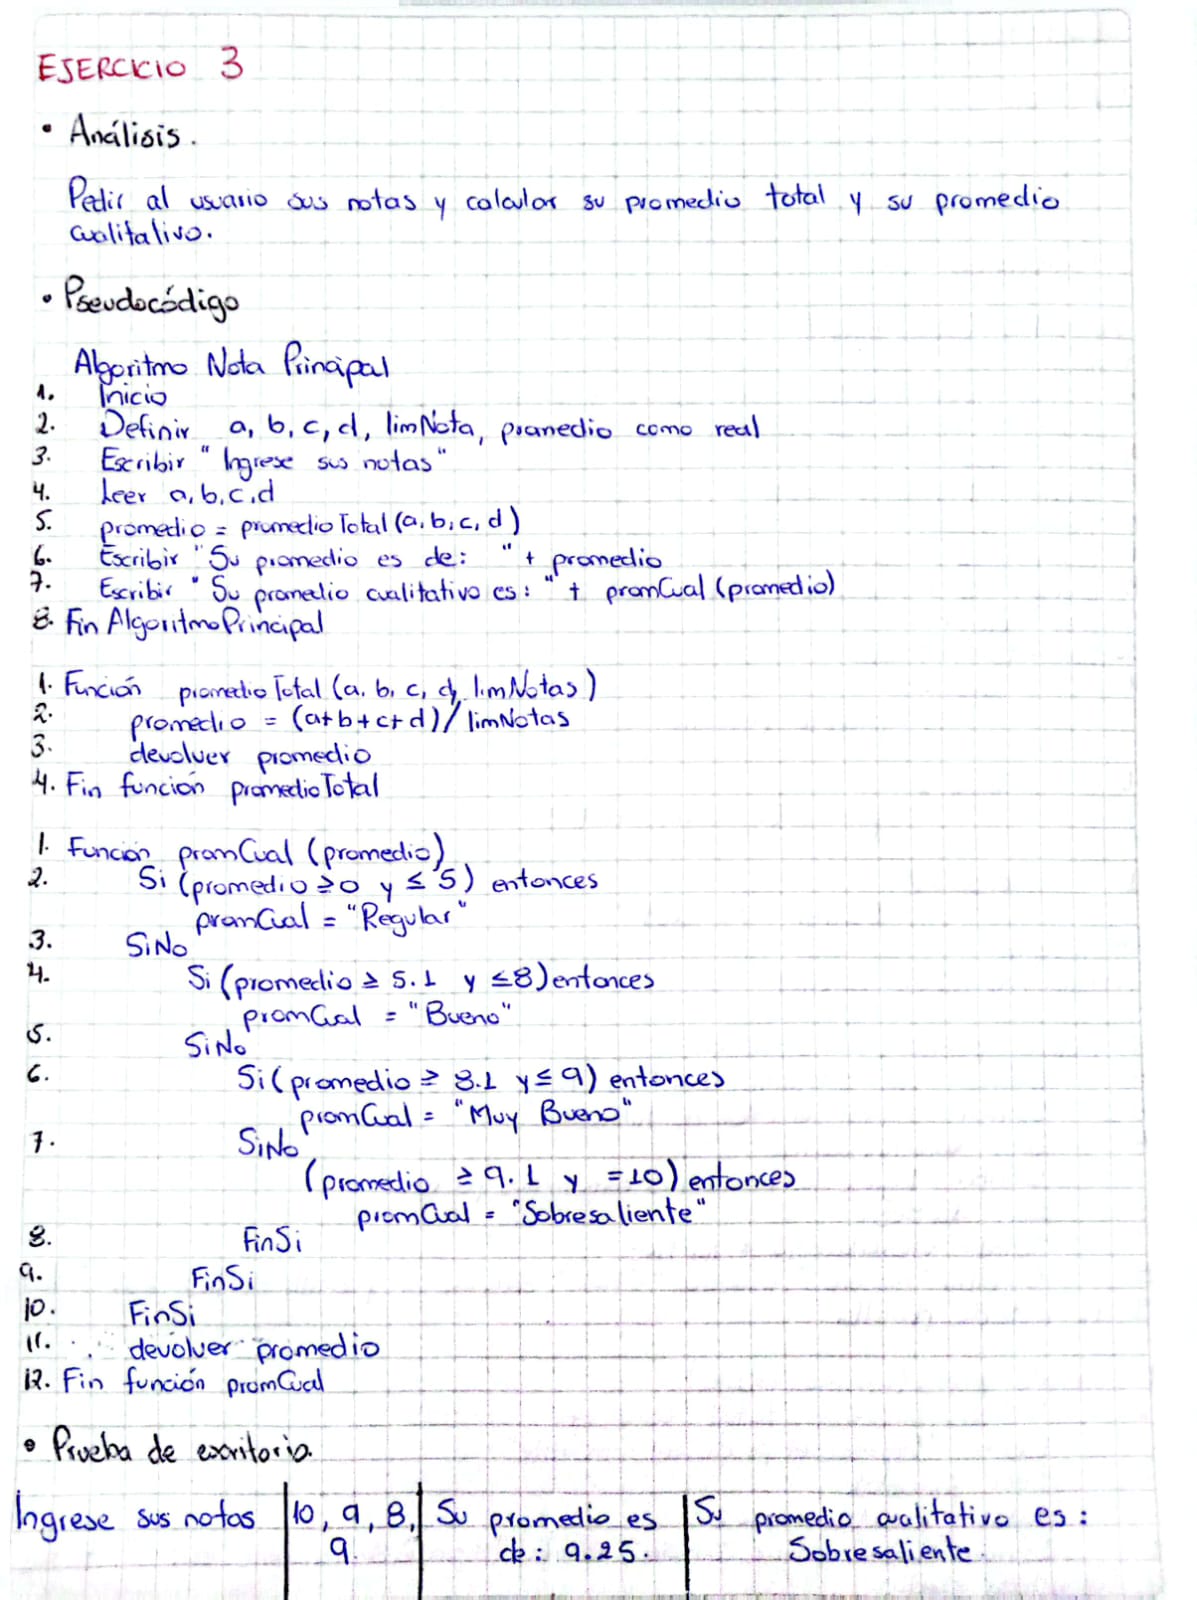 EJERCICIO 3
• Análisis.
Pedir al usuario sus notas y calcular su promedio total y su promedio
cualitativo.
• Pseudocódigo
Algoritmo Nota Principal
1. Inicio
2. Definir a, b, c, d, limNota, promedio como real
3. Escribir "Ingrese sus notas"
4. Leer a, b, c, d
5. promedio = promedioTotal (a, b, c, d)
6. Escribir "Su promedio es de: " + promedio
7. Escribir "Su promedio cualitativo es: " + promCual (promedio)
8. Fin AlgoritmoPrincipal
1. Función promedioTotal (a, b, c, d, limNotas)
2. promedio = (a+b+c+d)/limNotas
3. devolver promedio
4. Fin función promedioTotal
1. Función promCual (promedio)
2. Si (promedio ≥ 0 y ≤ 5) entonces
promCual = "Regular"
3. SiNo
4. Si (promedio ≥ 5.1 y ≤8) entonces
promCual = "Bueno"
5. SiNo
6. Si (promedio ≥ 8.1 y ≤ 9) entonces
promCual = "Muy Bueno"
7. SiNo
(promedio ≥ 9.1 y =10) entonces
promCual = "Sobresaliente"
8. FinSi
9. FinSi
10. FinSi
11. devolver promedio
12. Fin función promCual
• Prueba de escritorio.
Ingrese sus notas | 10, 9, 8, | Su promedio es | Su promedio cualitativo es:
9. | de: 9.25. | Sobresaliente.